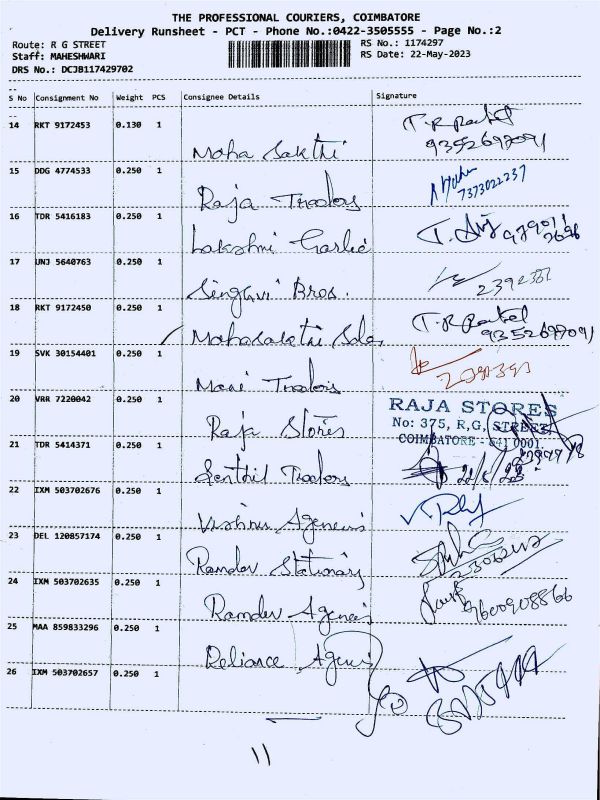 THE PROFESSIONAL COURIERS, COIMBATORE
Delivery Runsheet - PCT - Phone No.:0422-3505555 - Page No.:2
Route: R G STREET
RS No.: 1174297
Staff: MAHESHWARI
RS Date: 22-May-2023
DRS No.: DCJB117429702
S No Consignment No Weight PCS Consignee Details Signature
14 RKT 9172453 0.130 1
Moha Sakthi T.R Patel
9352697091
15 DDG 4774533 0.250 1
Raja Traders 7373022237
16 TDR 5416183 0.250 1
Lakshmi Garlic
17 UNJ 5640763 0.250 1
Singhvi Bros.
18 RKT 9172450 0.250 1
Mahasakthi Sales T.R Patel
9352697091
19 SVK 30154401 0.250 1
Mani Traders
20 VRR 7220042 0.250 1
RAJA STORES
No: 375, R,G, STREET,
COIMBATORE - 641 0001.
Raja Stores
21 TDR 5414371 0.250 1
Senthil Traders
22 IXM 503702676 0.250 1
Vishnu Agencies
23 DEL 120857174 0.250 1
Ramdev Stationary
24 IXM 503702635 0.250 1
Ramdev Agencies 9600908866
25 MAA 859833296 0.250 1
Reliance Agencies
26 IXM 503702657 0.250 1
11